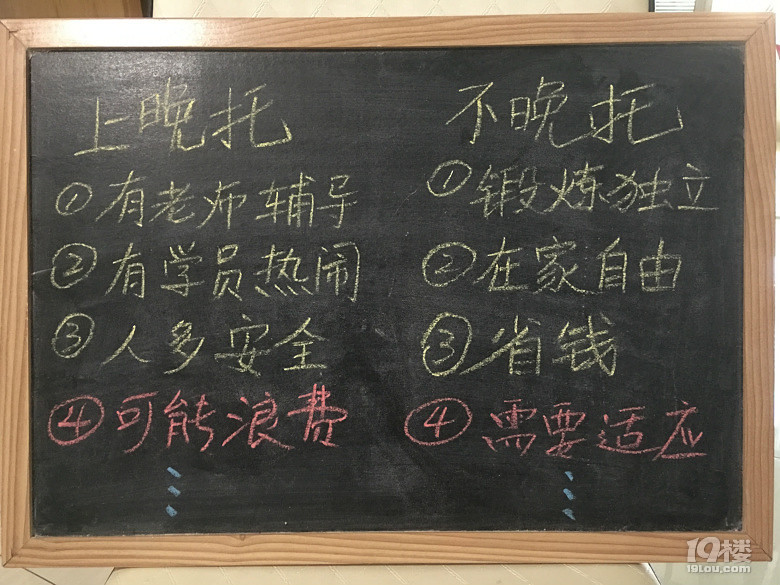 上晚托
①有老师辅导
②有学员热闹
③人多安全
④可能浪费
不晚托
①锻炼独立
②在家自由
③省钱
④需要适应
19楼
19lou.com